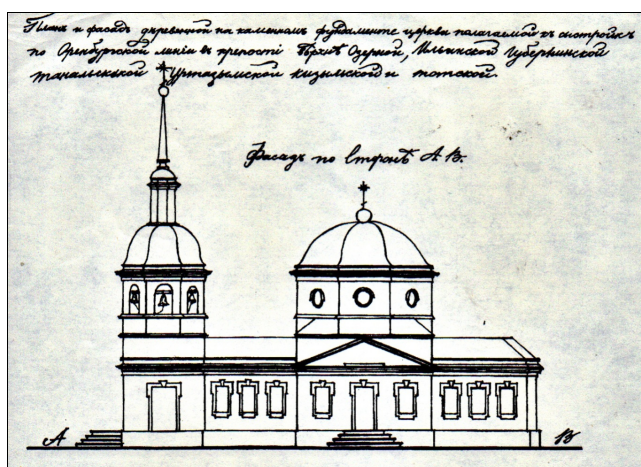 Планъ и фасадъ деревянной на каменномъ фундаменте церкви полагаемой къ выстройкѣ
по Оренбургской линіи въ крепости Верхне Озерной, Ильинской Губерлинской
таналыкской Уртазымской кизыльской и татской.
Фасадъ по сторонѣ А. В.
А
В